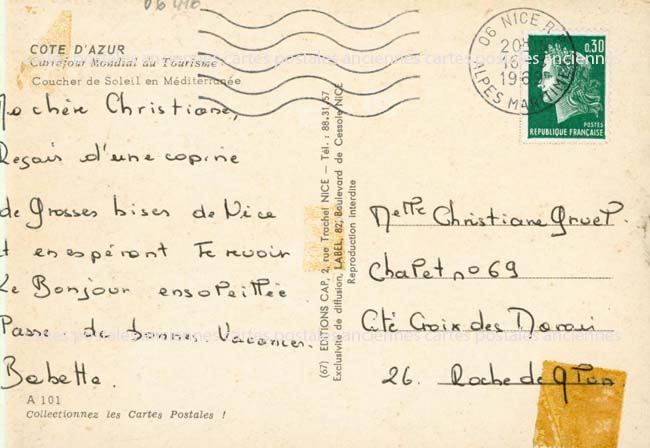 06 410
CÔTE D'AZUR
Carrefour Mondial du Tourisme
Coucher de Soleil en Méditerranée
Ma chère Christiane,
Reçois d'une copine
de grosses bises de Nice
et en espérant te revoir
Le Bonjour ensoleillée
Passe de bonnes Vacances.
Babette.
A 101
Collectionnez les Cartes Postales !
(67) EDITIONS CAP, 2, rue Trachel NICE — Tél. : 88.31-57
Exclusivité de diffusion, LABEL, 82, Boulevard de Cessole NICE
Reproduction interdite
06 NICE R.P.
16
1969
ALPES MARITIMES
0,30
POSTES
REPUBLIQUE FRANÇAISE
Melle Christiane Gruel.
Chalet no 69
Cité Croix des
26. Roche de Glun
cartes postales anciennes cartes postales anciennes
cartes postales anciennes cartes postales anciennes